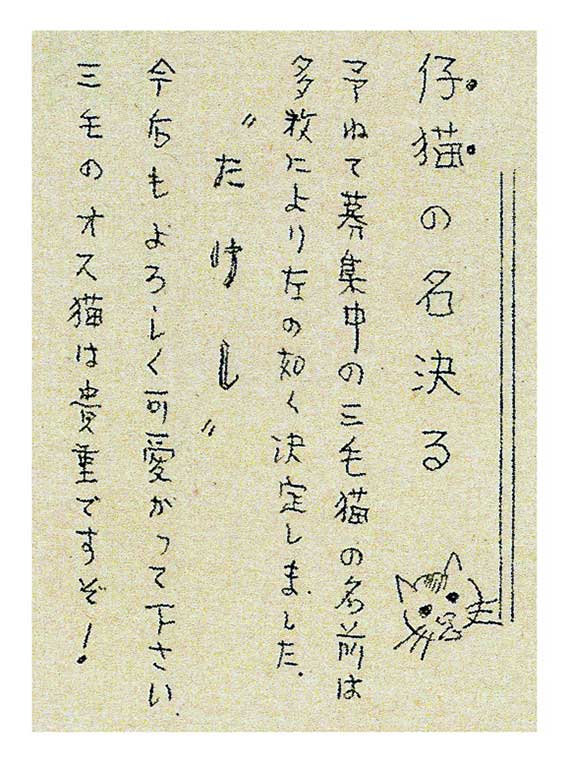 仔猫の名決る
予ねて募集中の三毛猫の名前は
多数により左の如く決定しました.
〝たけし〟
今后もよろしく可愛がって下さい.
三毛のオス猫は貴重ですぞ!